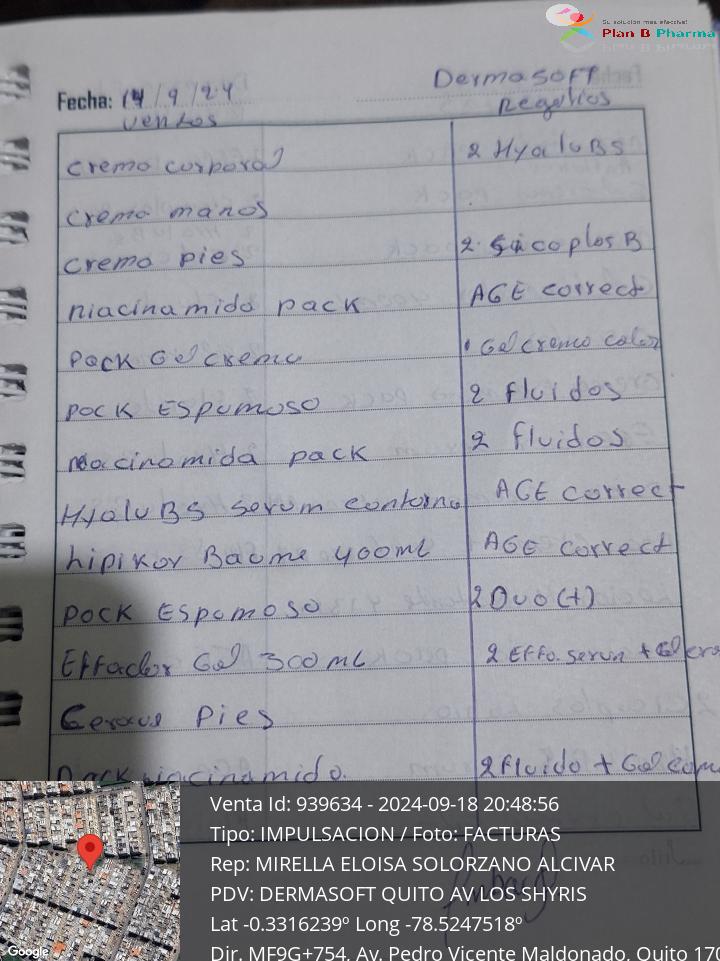 Su solución más efectiva!
Plan B Pharma
Fecha: 14/9/24 DermaSOFT
Ventas Regalios
crema corporal 2 HyaluB5
crema manos
crema pies 2 Cicaplas B
niacinamida pack AGE correct
Pack Gel crema 1 Gel crema color
Pack ESpumoso 2 fluidos
niacinamida pack 2 fluidos
HyaluB5 serum contorno AGE correct
Lipikar Baume 400ml AGE correct
Pack ESpumoso 2 Duo(+)
Effaclar Gel 300ML 2 Effa. serum + Gel
Cerave Pies
Pack niacinamida. 2 fluido + Gel
Venta Id: 939634 - 2024-09-18 20:48:56
Tipo: IMPULSACION / Foto: FACTURAS
Rep: MIRELLA ELOISA SOLORZANO ALCIVAR
PDV: DERMASOFT QUITO AV.LOS SHYRIS
Lat -0.3316239º Long -78.5247518º
Dir. MF9G+754, Av. Pedro Vicente Maldonado, Quito 170
Google